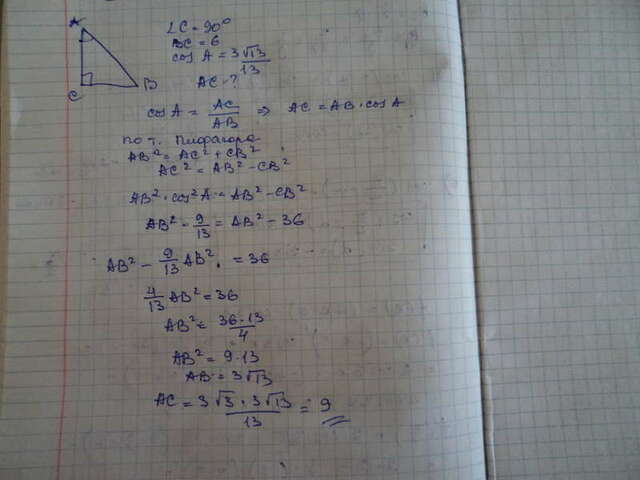 A
C
B
∠C = 90°
BC = 6
cos A = 3√13/13
AC - ?
cos A = AC/AB ⇒ AC = AB · cos A
по т. Пифагора
AB² = AC² + CB²
AC² = AB² - CB²
AB² · cos² A = AB² - CB²
AB² · 9/13 = AB² - 36
AB² - 9/13 AB² = 36
4/13 AB² = 36
AB² = 36·13/4
AB² = 9·13
AB = 3√13
AC = 3√3 · 3√13/13 = 9